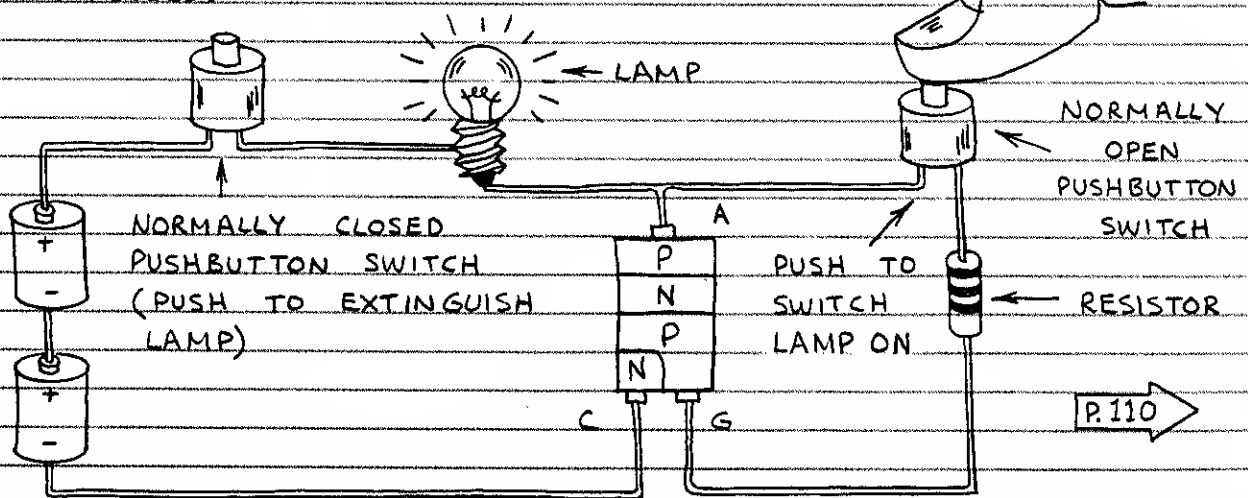 LAMP
NORMALLY
OPEN
PUSHBUTTON
SWITCH
+
-
NORMALLY CLOSED
PUSHBUTTON SWITCH
(PUSH TO EXTINGUISH
LAMP)
A
P
N
P
N
PUSH TO
SWITCH
LAMP ON
RESISTOR
+
-
C
G
P. 110